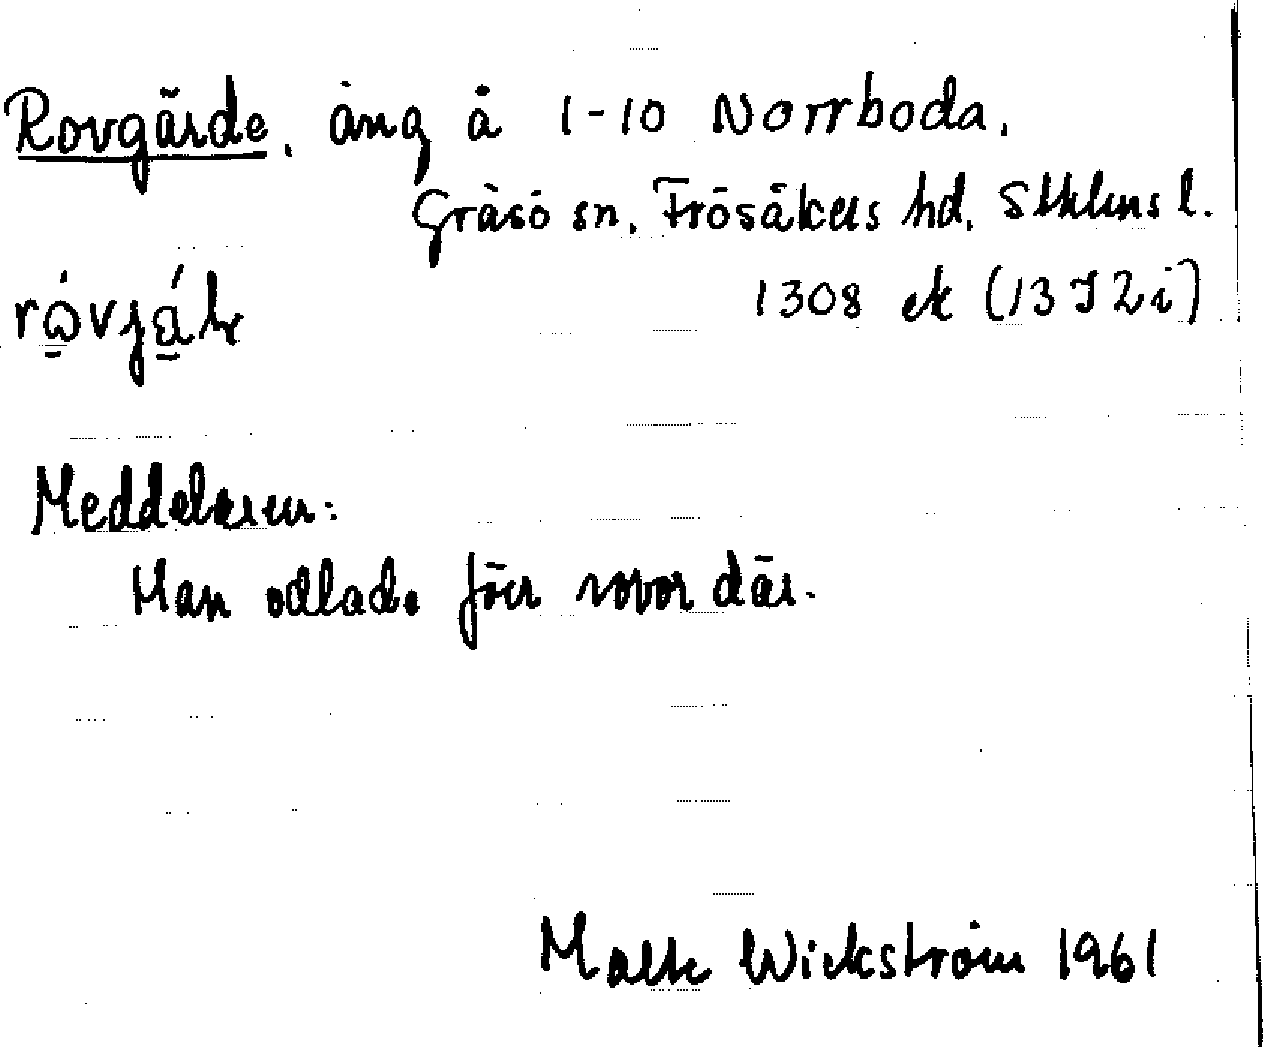 Rovgärde, äng å 1-10 Norrboda,
Gräsö sn, Frösåkers hd, Sthlms l.
1308 ek (13 I 2 i)
Meddelaren:
Man odlade förr rovor där.
Malte Wickström 1961